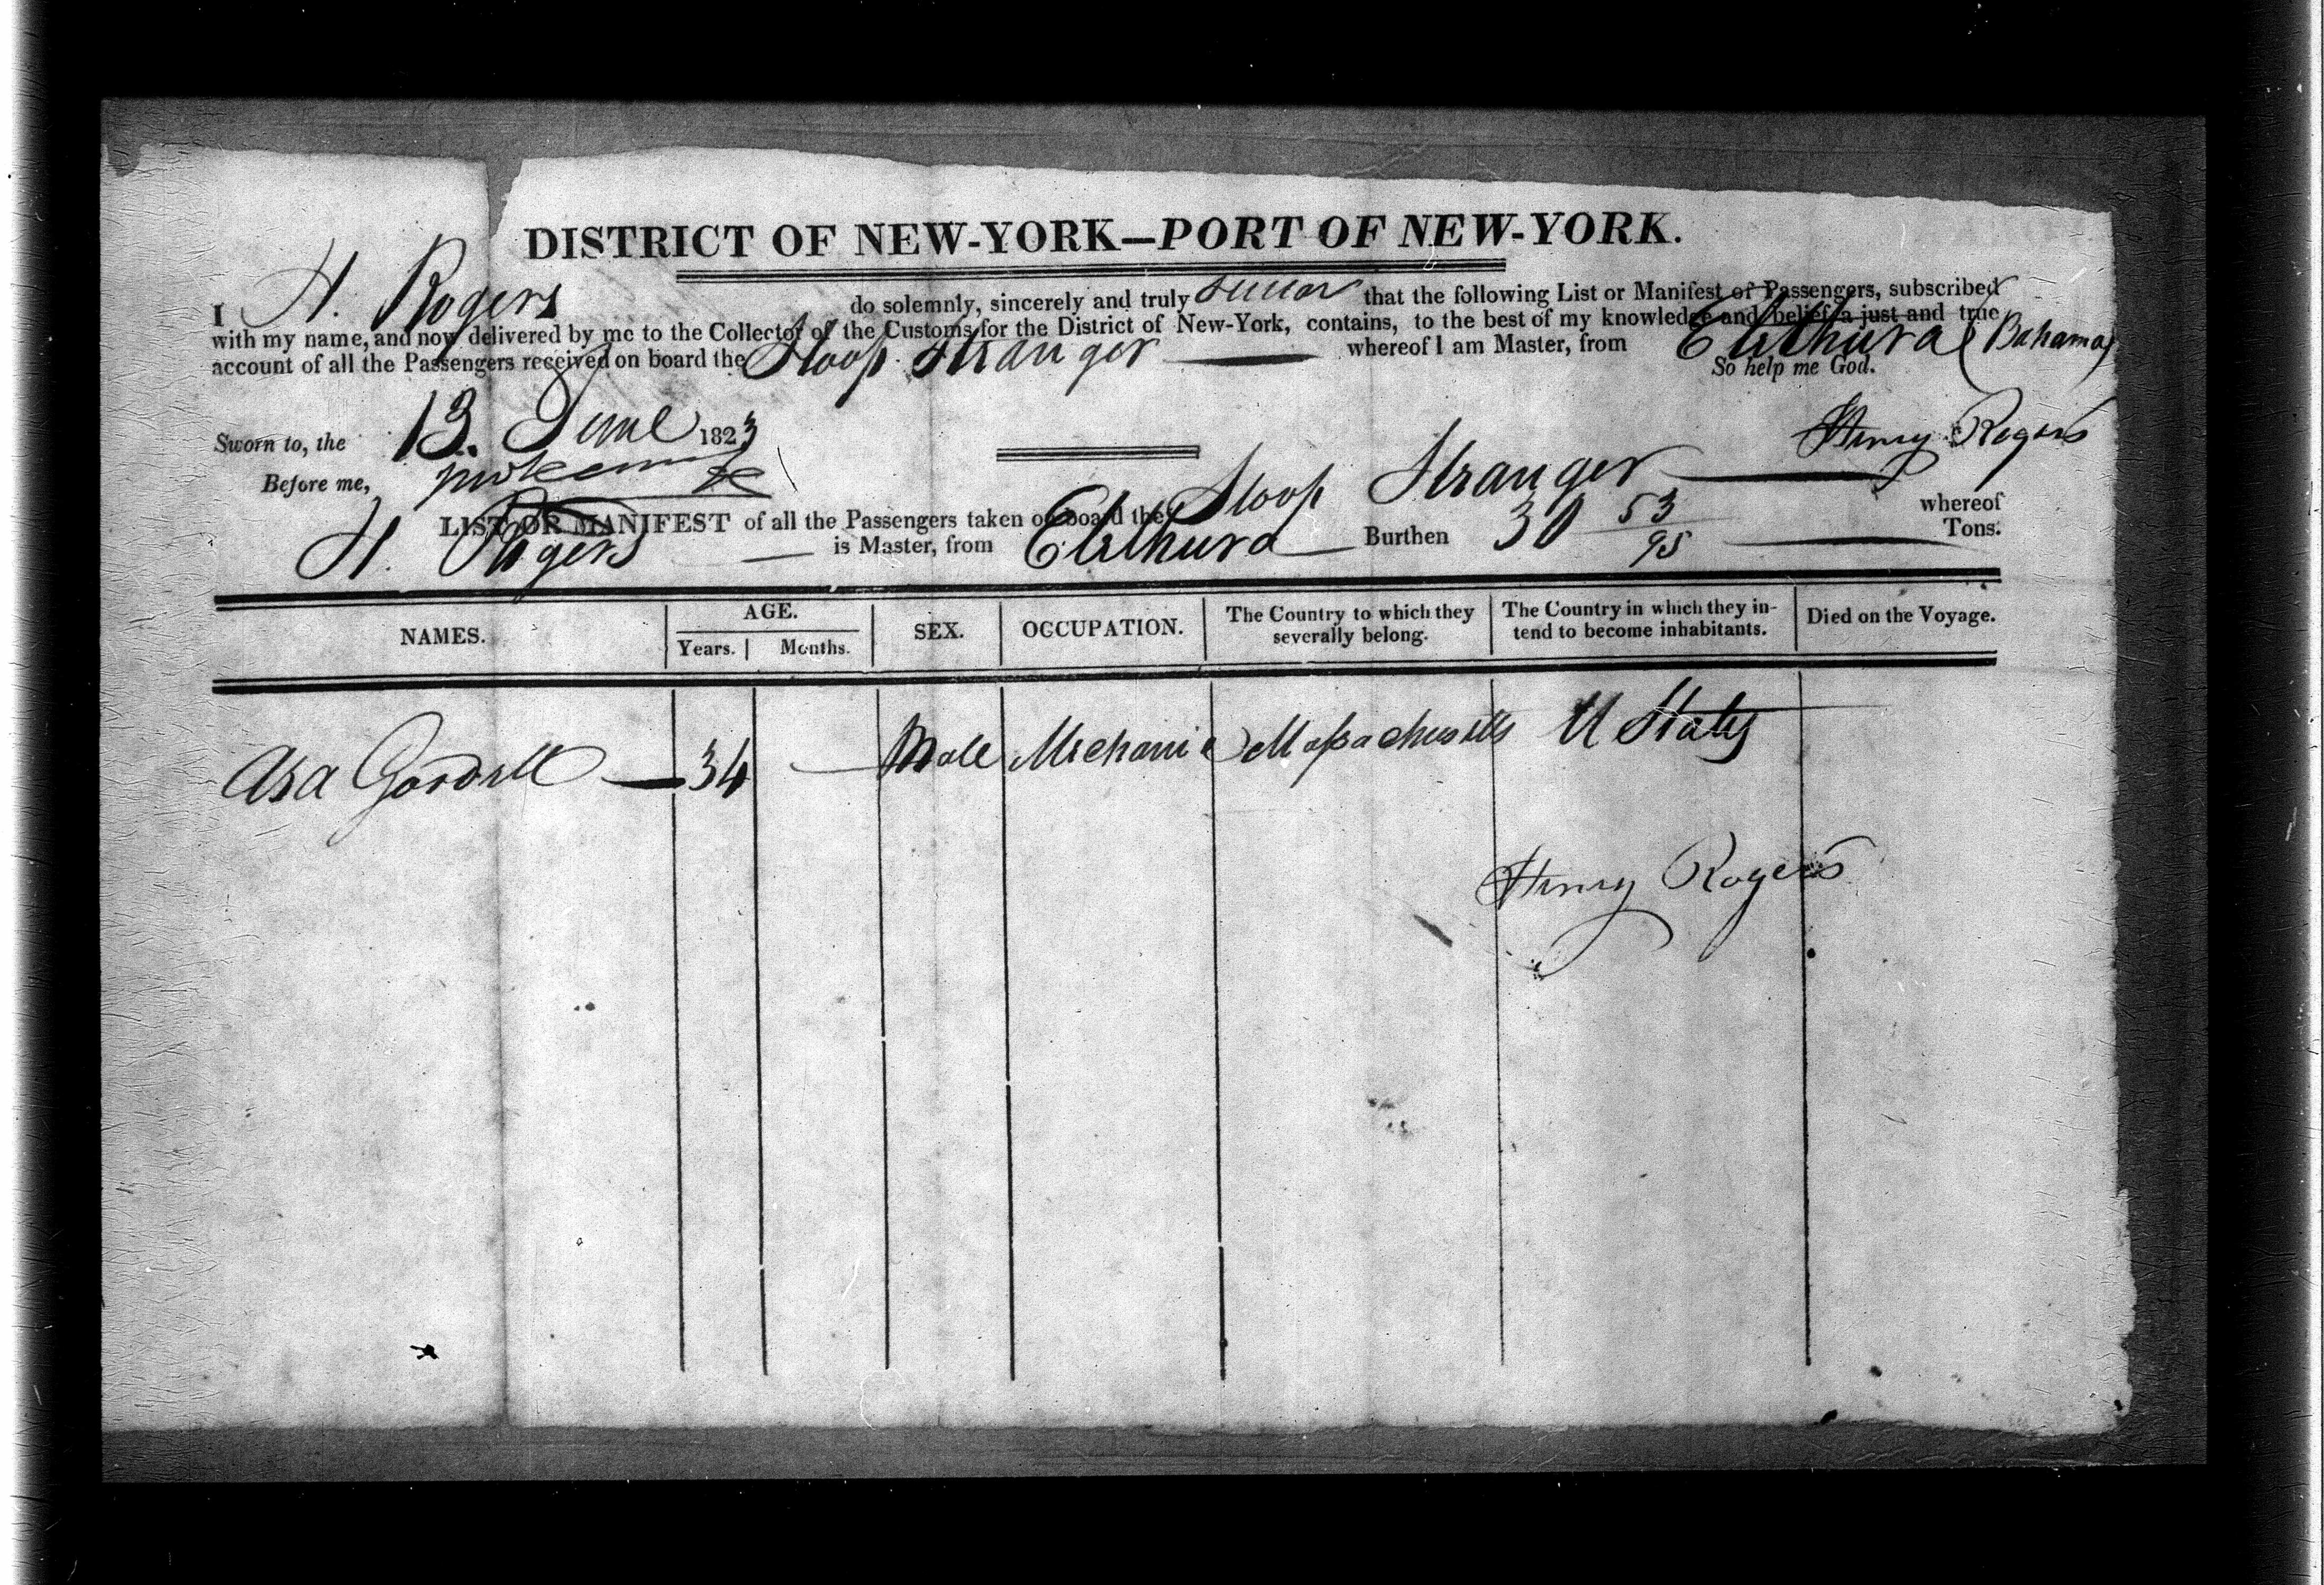 DISTRICT OF NEW-YORK—PORT OF NEW-YORK.
I H. Rogers do solemnly, sincerely and truly swear that the following List or Manifest of Passengers, subscribed
with my name, and now delivered by me to the Collector of the Customs for the District of New-York, contains, to the best of my knowledge and belief, a just and true
account of all the Passengers received on board the Sloop Stranger whereof I am Master, from Elethura (Bahama)
So help me God.
Sworn to, the 13. June 1823
Henry Rogers
Before me,
LIST OR MANIFEST of all the Passengers taken on board the Sloop Stranger whereof
H. Rogers is Master, from Elethura Burthen 30 53/95 Tons.
NAMES. AGE. Years. Months. SEX. OCCUPATION. The Country to which they severally belong. The Country in which they intend to become inhabitants. Died on the Voyage.
Asa Gordell 34 Male Mechanic Massachusetts U States
Henry Rogers